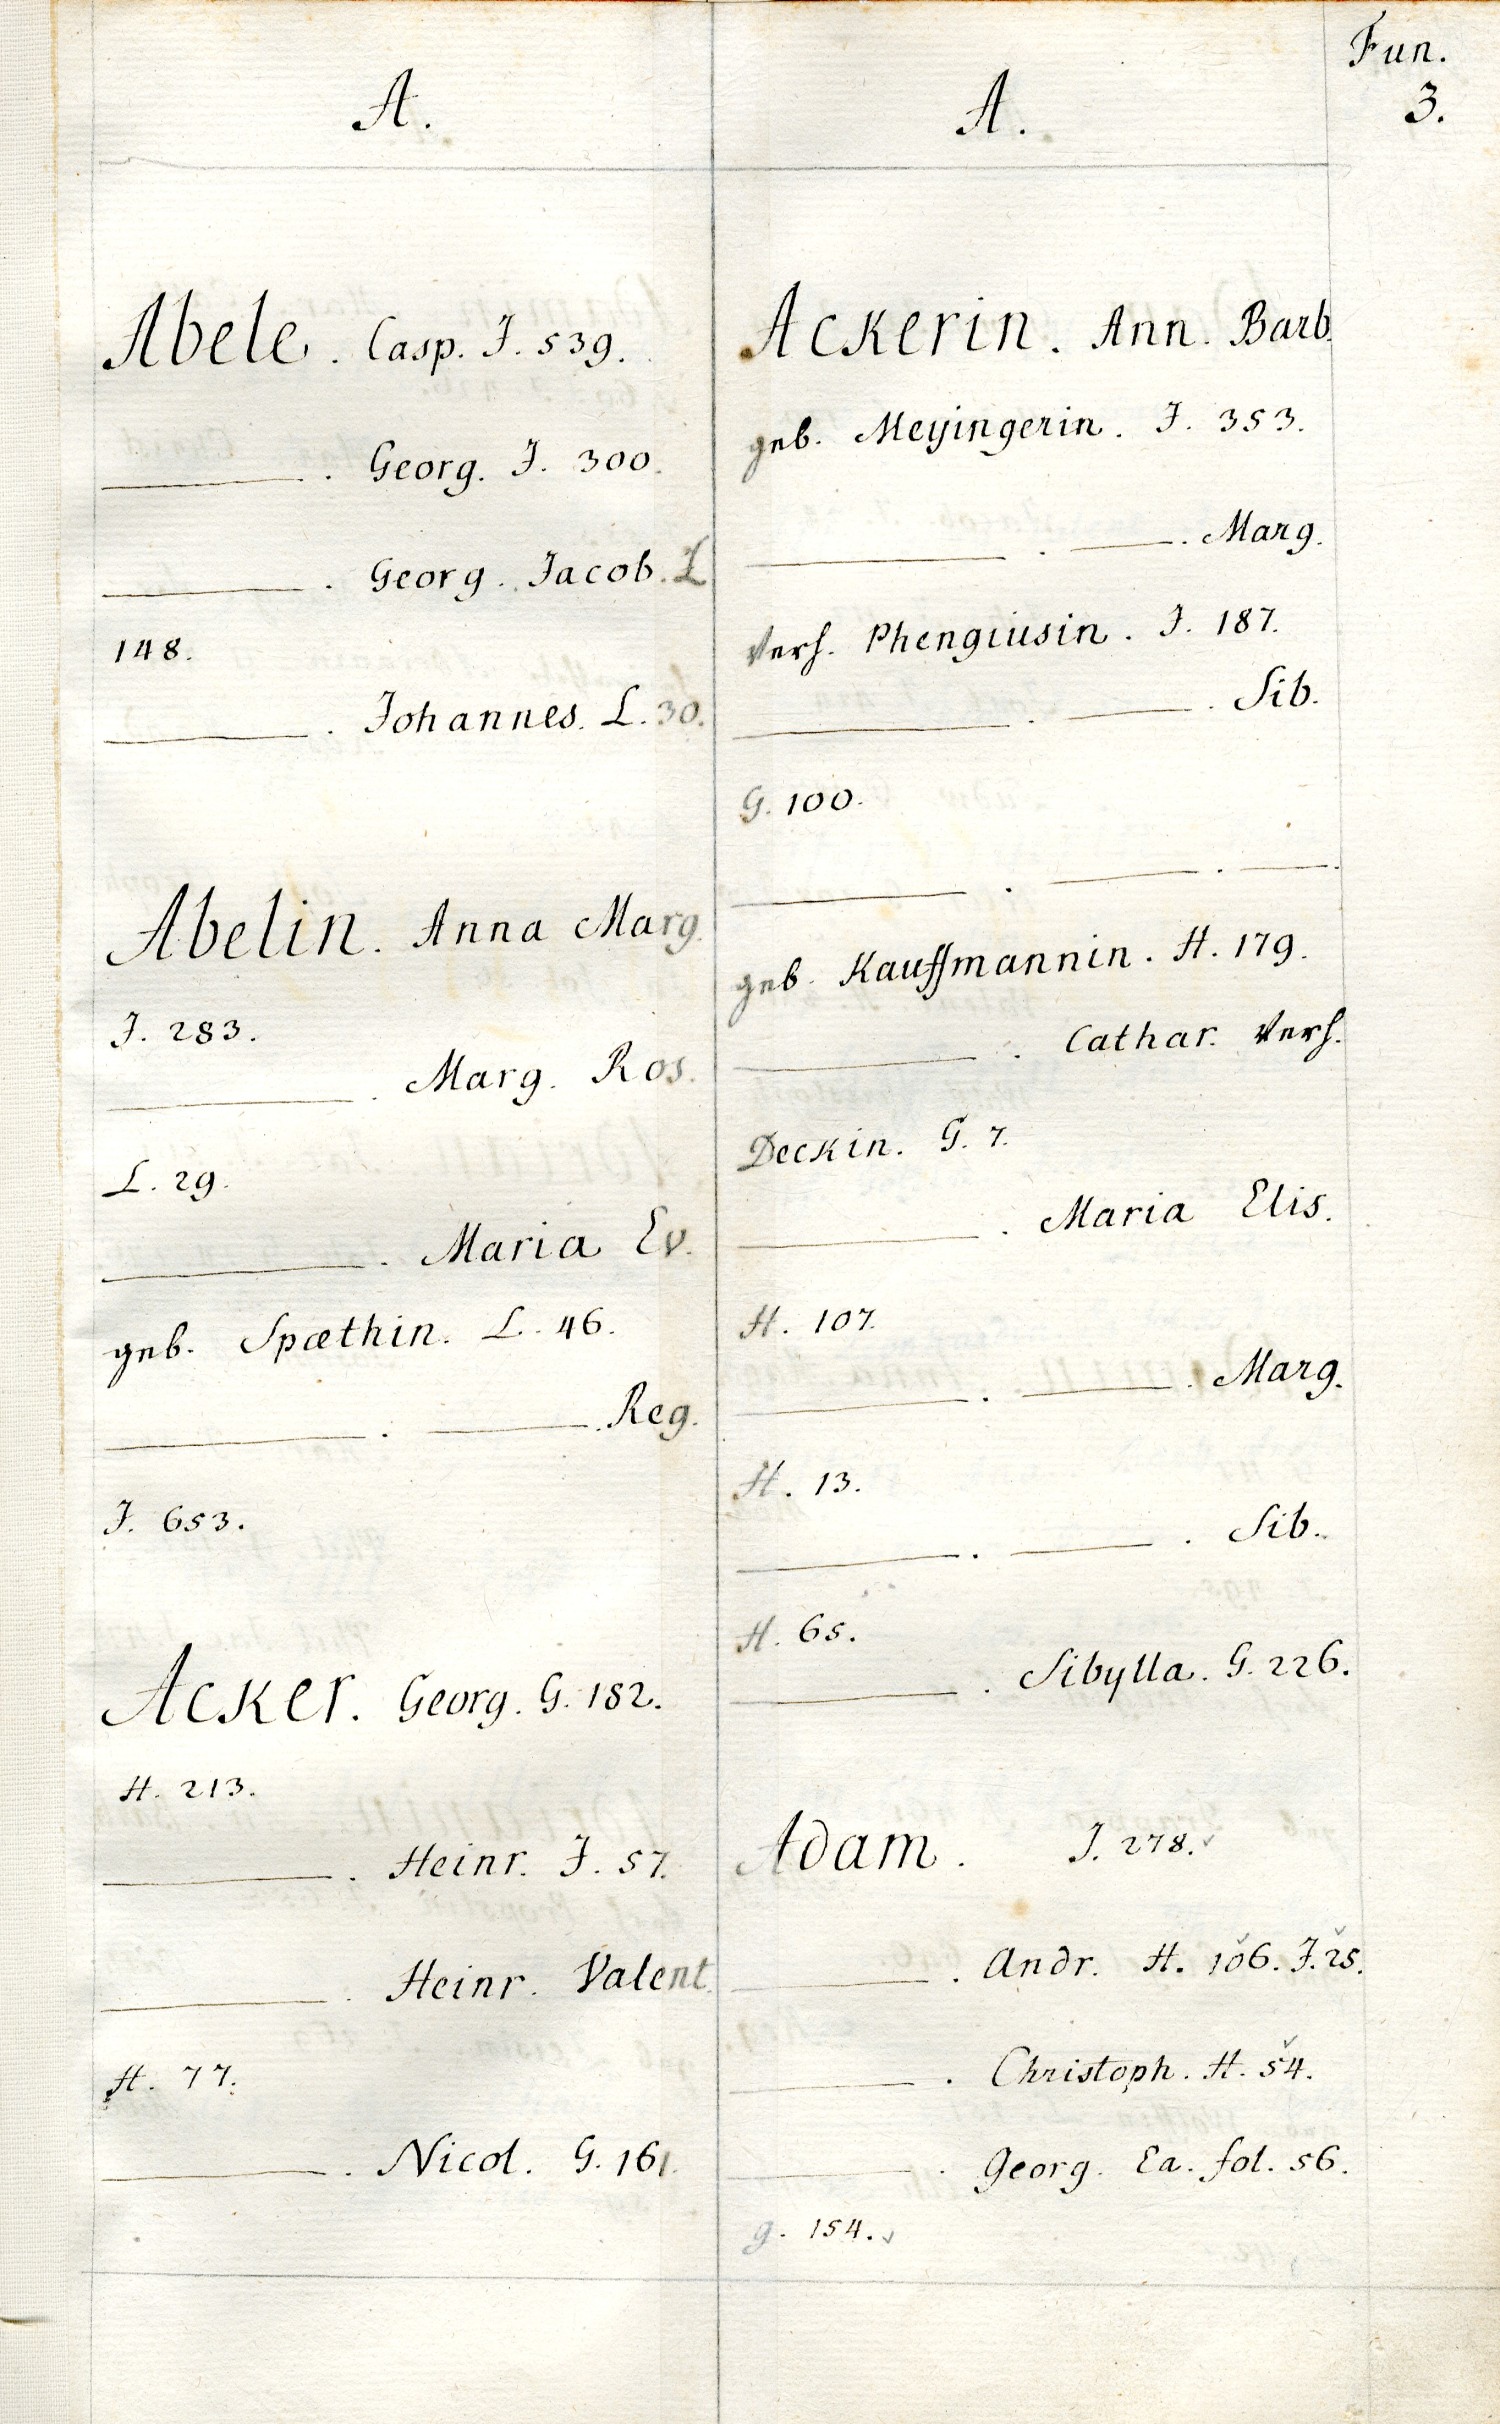 Fun.
3.
A.
Abele. Casp. J. 539.
———. Georg. J. 300.
———. Georg. Jacob. L
148.
———. Johannes. L. 30.
Abelin. Anna Marg.
J. 283.
———. Marg. Ros.
L. 29.
———. Maria Ev.
geb. Spæthin. L. 46.
———. ———. Reg.
J. 653.
Acker. Georg. G. 182.
H. 213.
———. Heinr. J. 57.
———. Heinr. Valent.
H. 77.
———. Nicol. G. 161.
A.
Ackerin. Ann. Barb.
geb. Meyingerin. J. 353.
———. ———. Marg.
Verh. Phengiusin. J. 187.
———. ———. Sib.
G. 100.
———. ———. ———.
geb. Kauffmannin. H. 179.
———. Cathar. Verh.
Deckin. G. 7.
———. Maria Elis.
H. 107.
———. ———. Marg.
H. 13.
———. ———. Sib.
H. 65.
———. Sibylla. G. 226.
Adam. J. 278.
———. Andr. H. 106. J. 25.
———. Christoph. H. 54.
———. Georg. Ea. fol. 56.
g. 154.